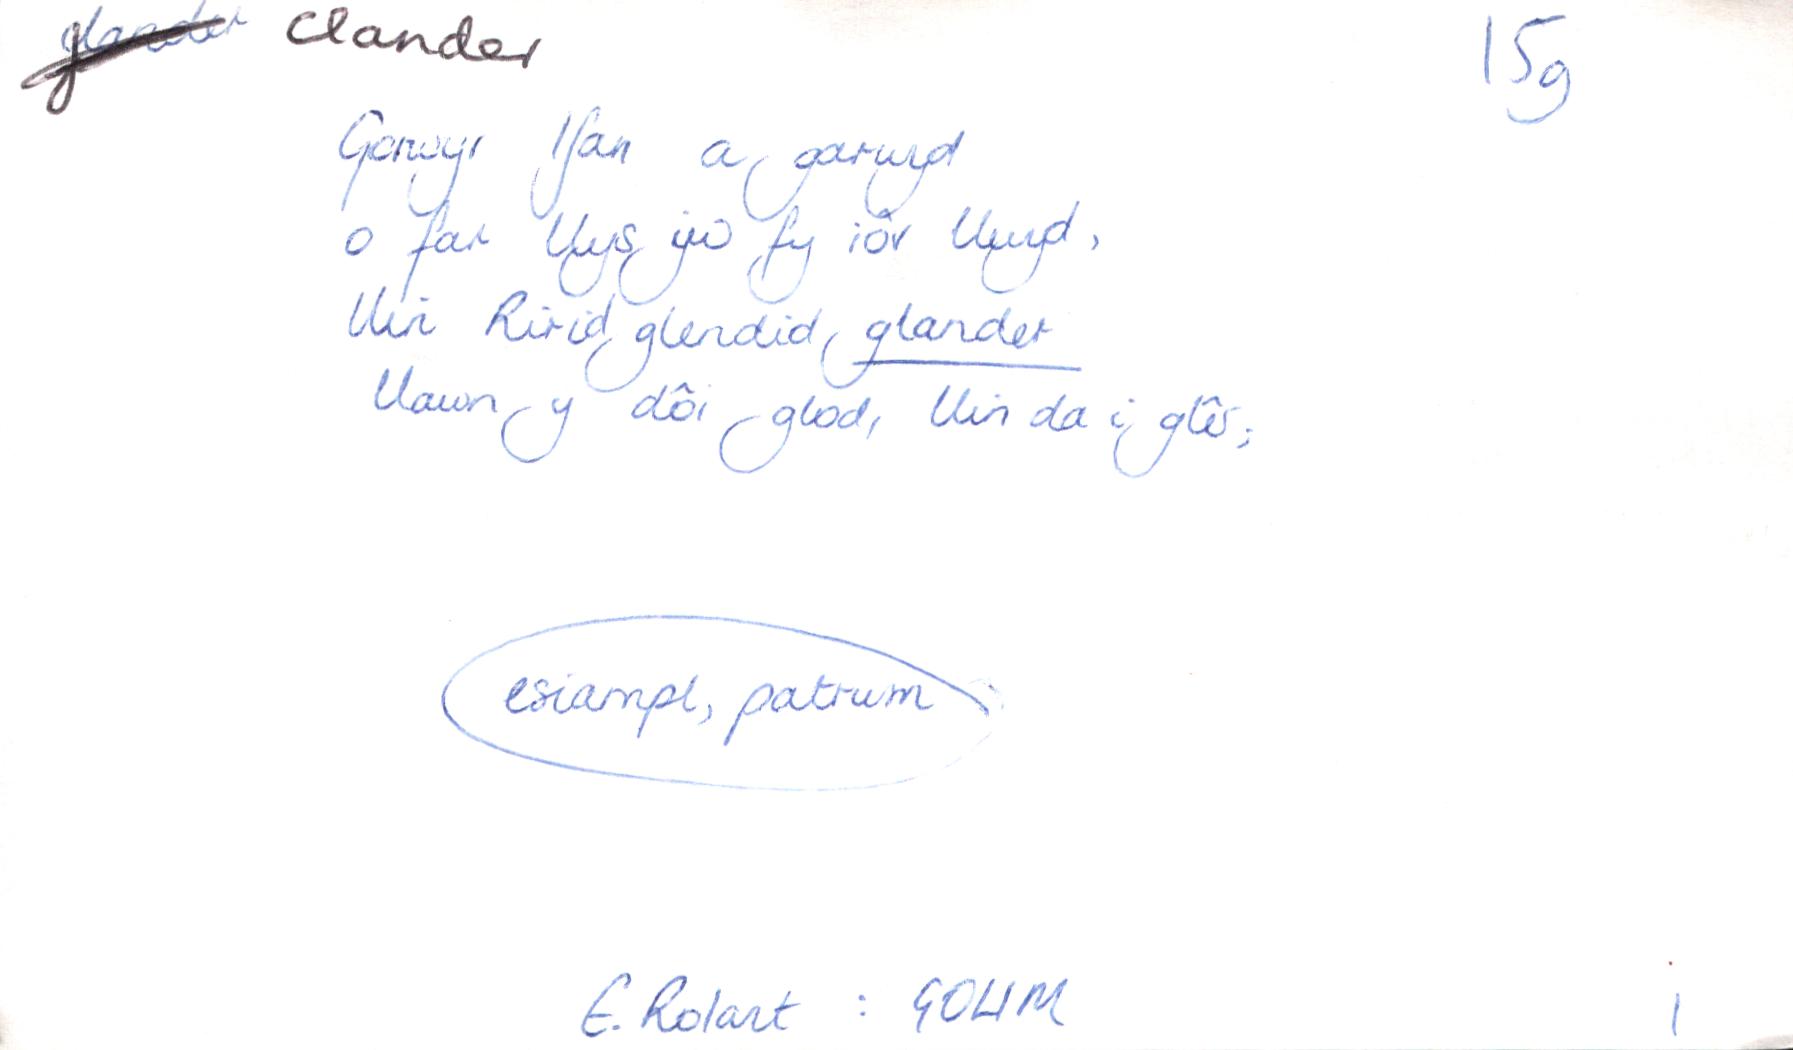 glander Clander
15g
Gorwyr Ifan a garwyd
o far llys yw fy iôr llwyd,
llin Ririd, glendid, glander
llawn y dôi glod, llin da i glêr;
esiampl, patrwm
E. Rolant : GOLlM
1